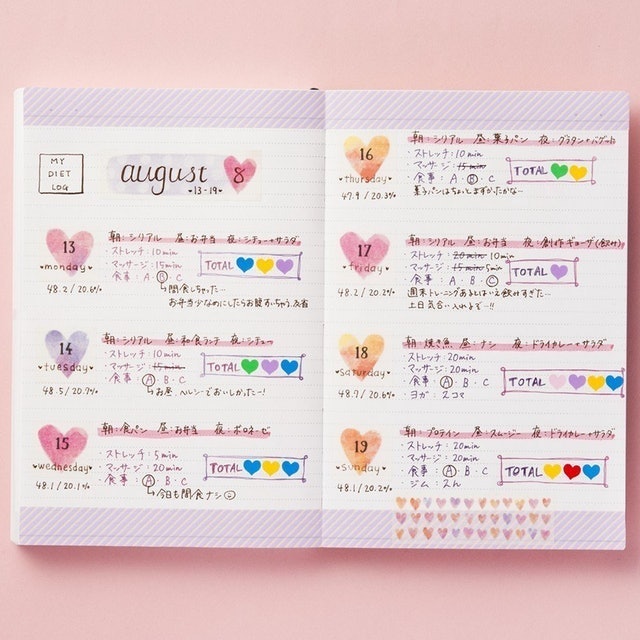 MY
DIET
LOG
august 8
•13-19•
13
monday
48.2 / 20.6%
朝:シリアル 昼:お弁当 夜:シチュー+サラダ
・ストレッチ:10min
・マッサージ:15min
・食事:A・B・C
TOTAL
↳間食しちゃった…
お弁当少なめにしたらお腹すいちゃう
14
tuesday
48.5 / 20.9%
朝:シリアル 昼:和食ランチ 夜:シチュー
・ストレッチ:10min
・マッサージ:15min
・食事:A・B・C
TOTAL
↳お昼、ヘルシーでおいしかったー!
15
wednesday
48.1 / 20.1%
朝:食パン 昼:お弁当 夜:ボロネーゼ
・ストレッチ:5min
・マッサージ:20min
・食事:A・B・C
TOTAL
↳今日も間食ナシ
16
thursday
47.9 / 20.3%
朝:シリアル 昼:菓子パン 夜:グラタン+バゲット
・ストレッチ:10min
・マッサージ:15min
・食事:A・B・C
TOTAL
菓子パンはちょっとまずかったかな…
17
friday
48.2 / 20.2%
朝:シリアル 昼:お弁当 夜:創作ギョーザ(飲み)
・ストレッチ:20min 10min
・マッサージ:15min 5min
・食事:A・B・C
TOTAL
週末トレーニングあるとはいえ飲みすぎた…
土日気合い入れるぞー!!
18
saturday
48.7 / 20.6%
朝:焼き魚 昼:ナシ 夜:ドライカレー+サラダ
・ストレッチ:20min
・マッサージ:20min
・食事:A・B・C
・ヨガ:2コマ
TOTAL
19
sunday
48.1 / 20.2%
朝:プロテイン 昼:スムージー 夜:ドライカレー+サラダ
・ストレッチ:20min
・マッサージ:20min
・食事:A・B・C
・ジム:スん
TOTAL